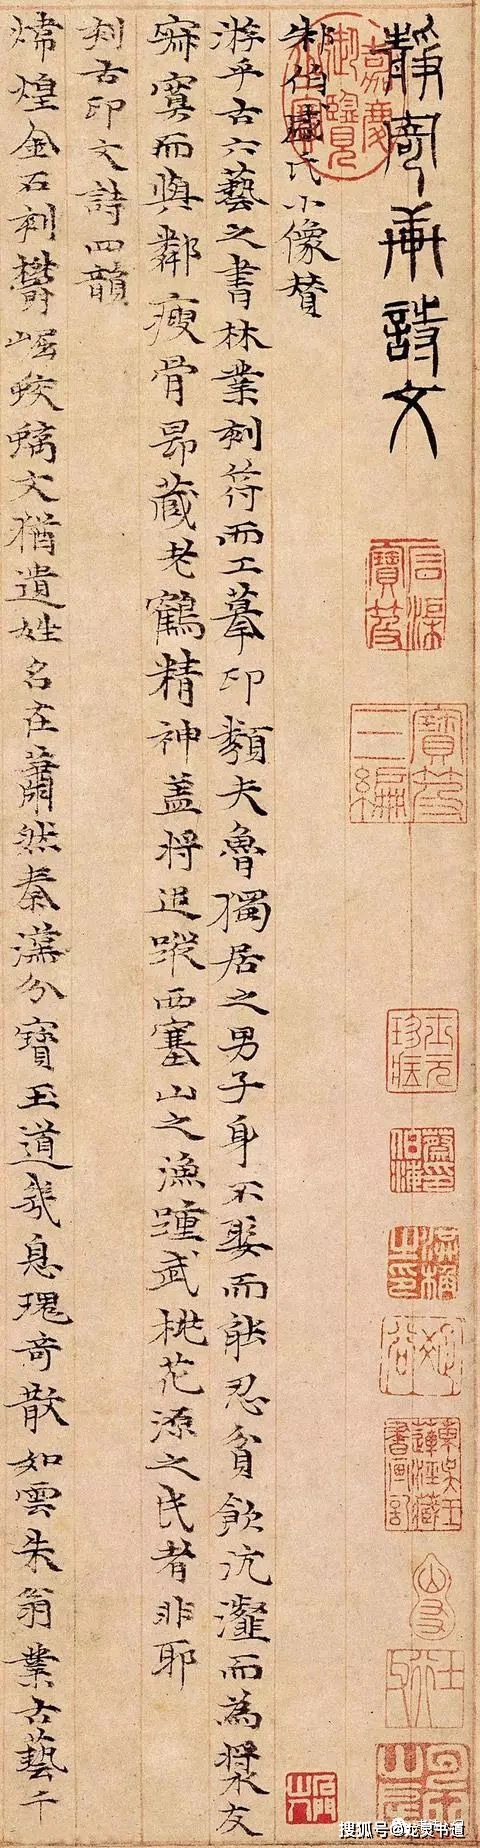 靜寄軒詩文
朱伯盛氏小像贊
游乎古六藝之書林業刻符而工摹印類夫魯獨居之男子身不娶而能忍貧飲沆瀣而為漿友
寂寞而與鄰瘦骨昂藏老鶴精神蓋將追蹤西塞山之漁踵武桃花源之民者非耶
刻古印文詩四韻
煒煌金石刻鬱崛蛟螭文猶遺姓名在蕭然秦漢分寶玉道幾息瑰奇散如雲朱翁業古藝千
嘉慶御覽之寶
石渠寶笈
寶笈三編
搜狐号@龙灵书道